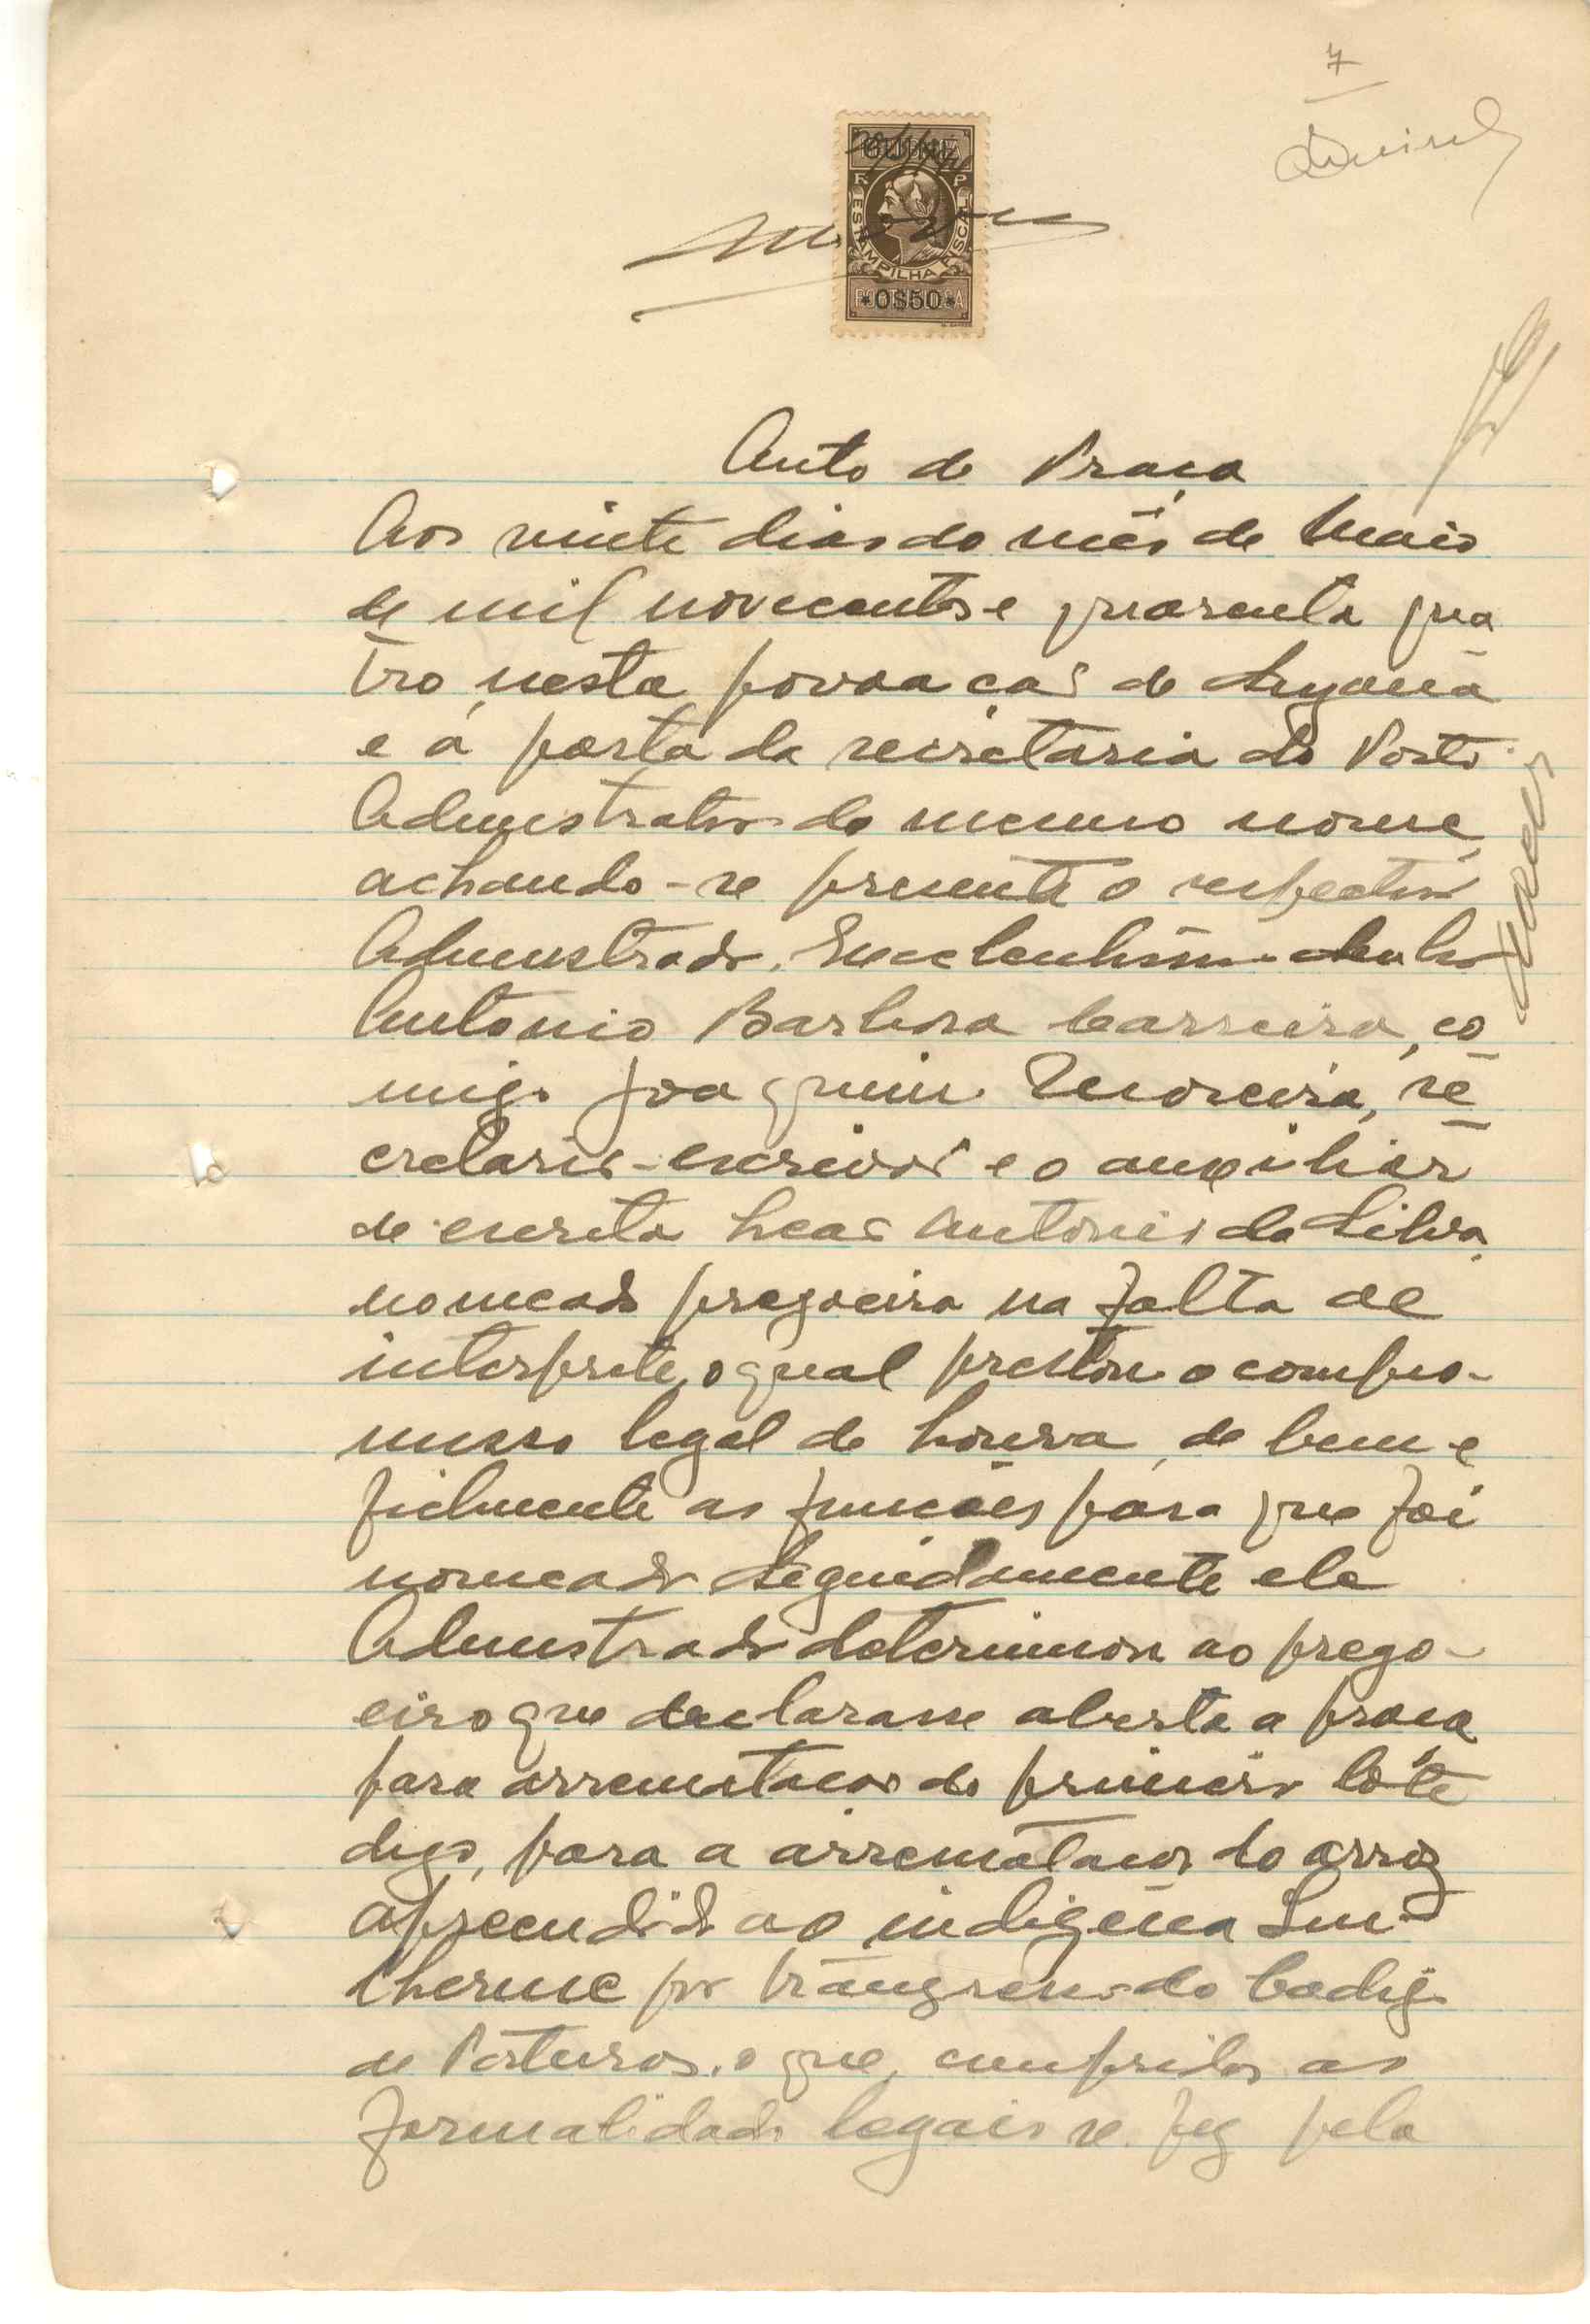 7
GUINÉ
R P
ESTAMPILHA FISCAL
*0$50*
Auto de Praça
Aos vinte dias do mês de Maio
de mil novecentos e quarenta qua
tro, nesta povoação de
e á porta da secretaria do Posto
Admnistrativo do mesmo nome,
achando-se presente o respectivo
Admnistrador, Excelentissimo Senhor
António Barbosa Carreira, co
migo Joaquim Moreira, se
cretario-escrivão e o auxiliar
de escrita Leão António da Silva,
nomeado pregoeiro na falta de
interprete, o qual prestou o compro-
misso legal de honra, de bem e
fielmente as funcões para que foi
nomeado Seguidamente ele
Admnistrador determinou ao prego-
eiro que declarasse aberta a praça
para arrematacão do primeiro lóte
digo, para a arrematacão do arroz
apreendido ao indigena
por do Codigo
de Posturas, o que, cumpridas as
formalidades legais se fez pela